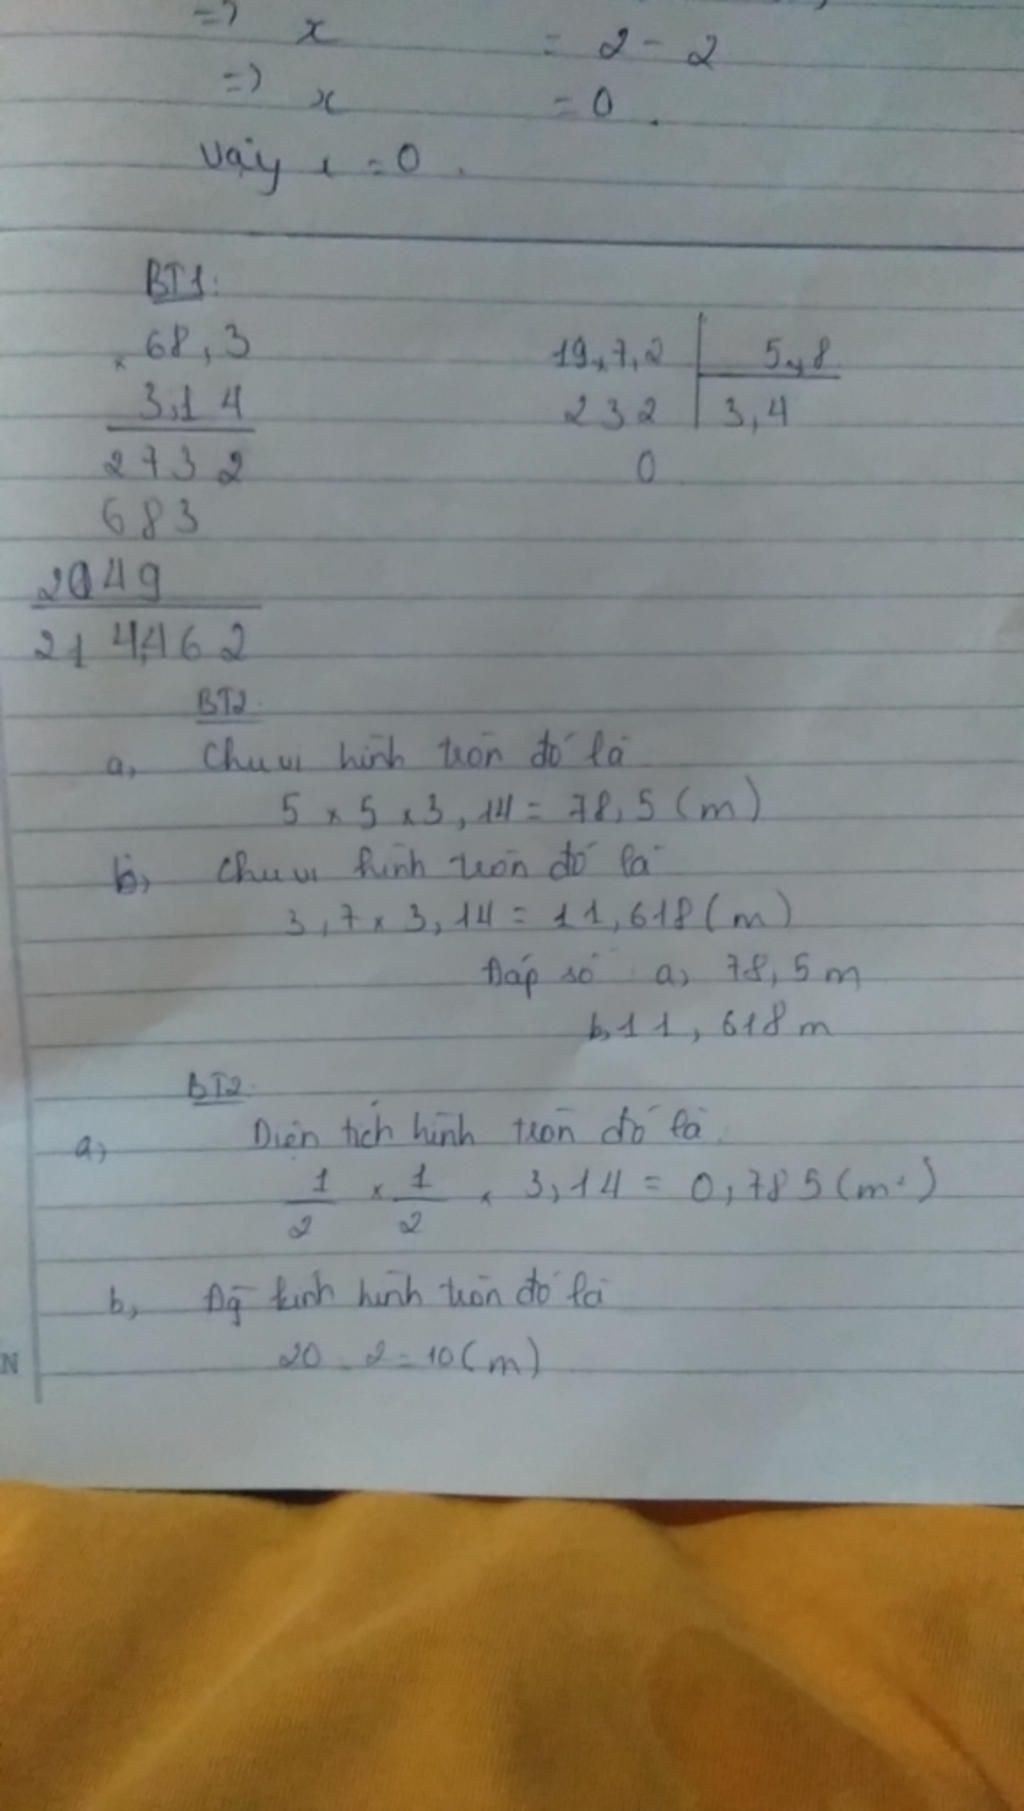 => x = 2 - 2
=> x = 0.
Vậy x = 0.
BT1:
× 68,3
3,14
2732
683
2049
214,462
19,7,2 5,8
232 3,4
0
BT2
a, Chu vi hình tròn đó là
5 × 5 × 3,14 = 78,5 (m)
b, Chu vi hình tròn đó là
3,7 × 3,14 = 11,618 (m)
Đáp số a, 78,5 m
b, 11,618 m
BT2
a, Diện tích hình tròn đó là
1/2 × 1/2 × 3,14 = 0,785 (m²)
b, kính hình tròn đó là
20 : 2 = 10 (m)
N